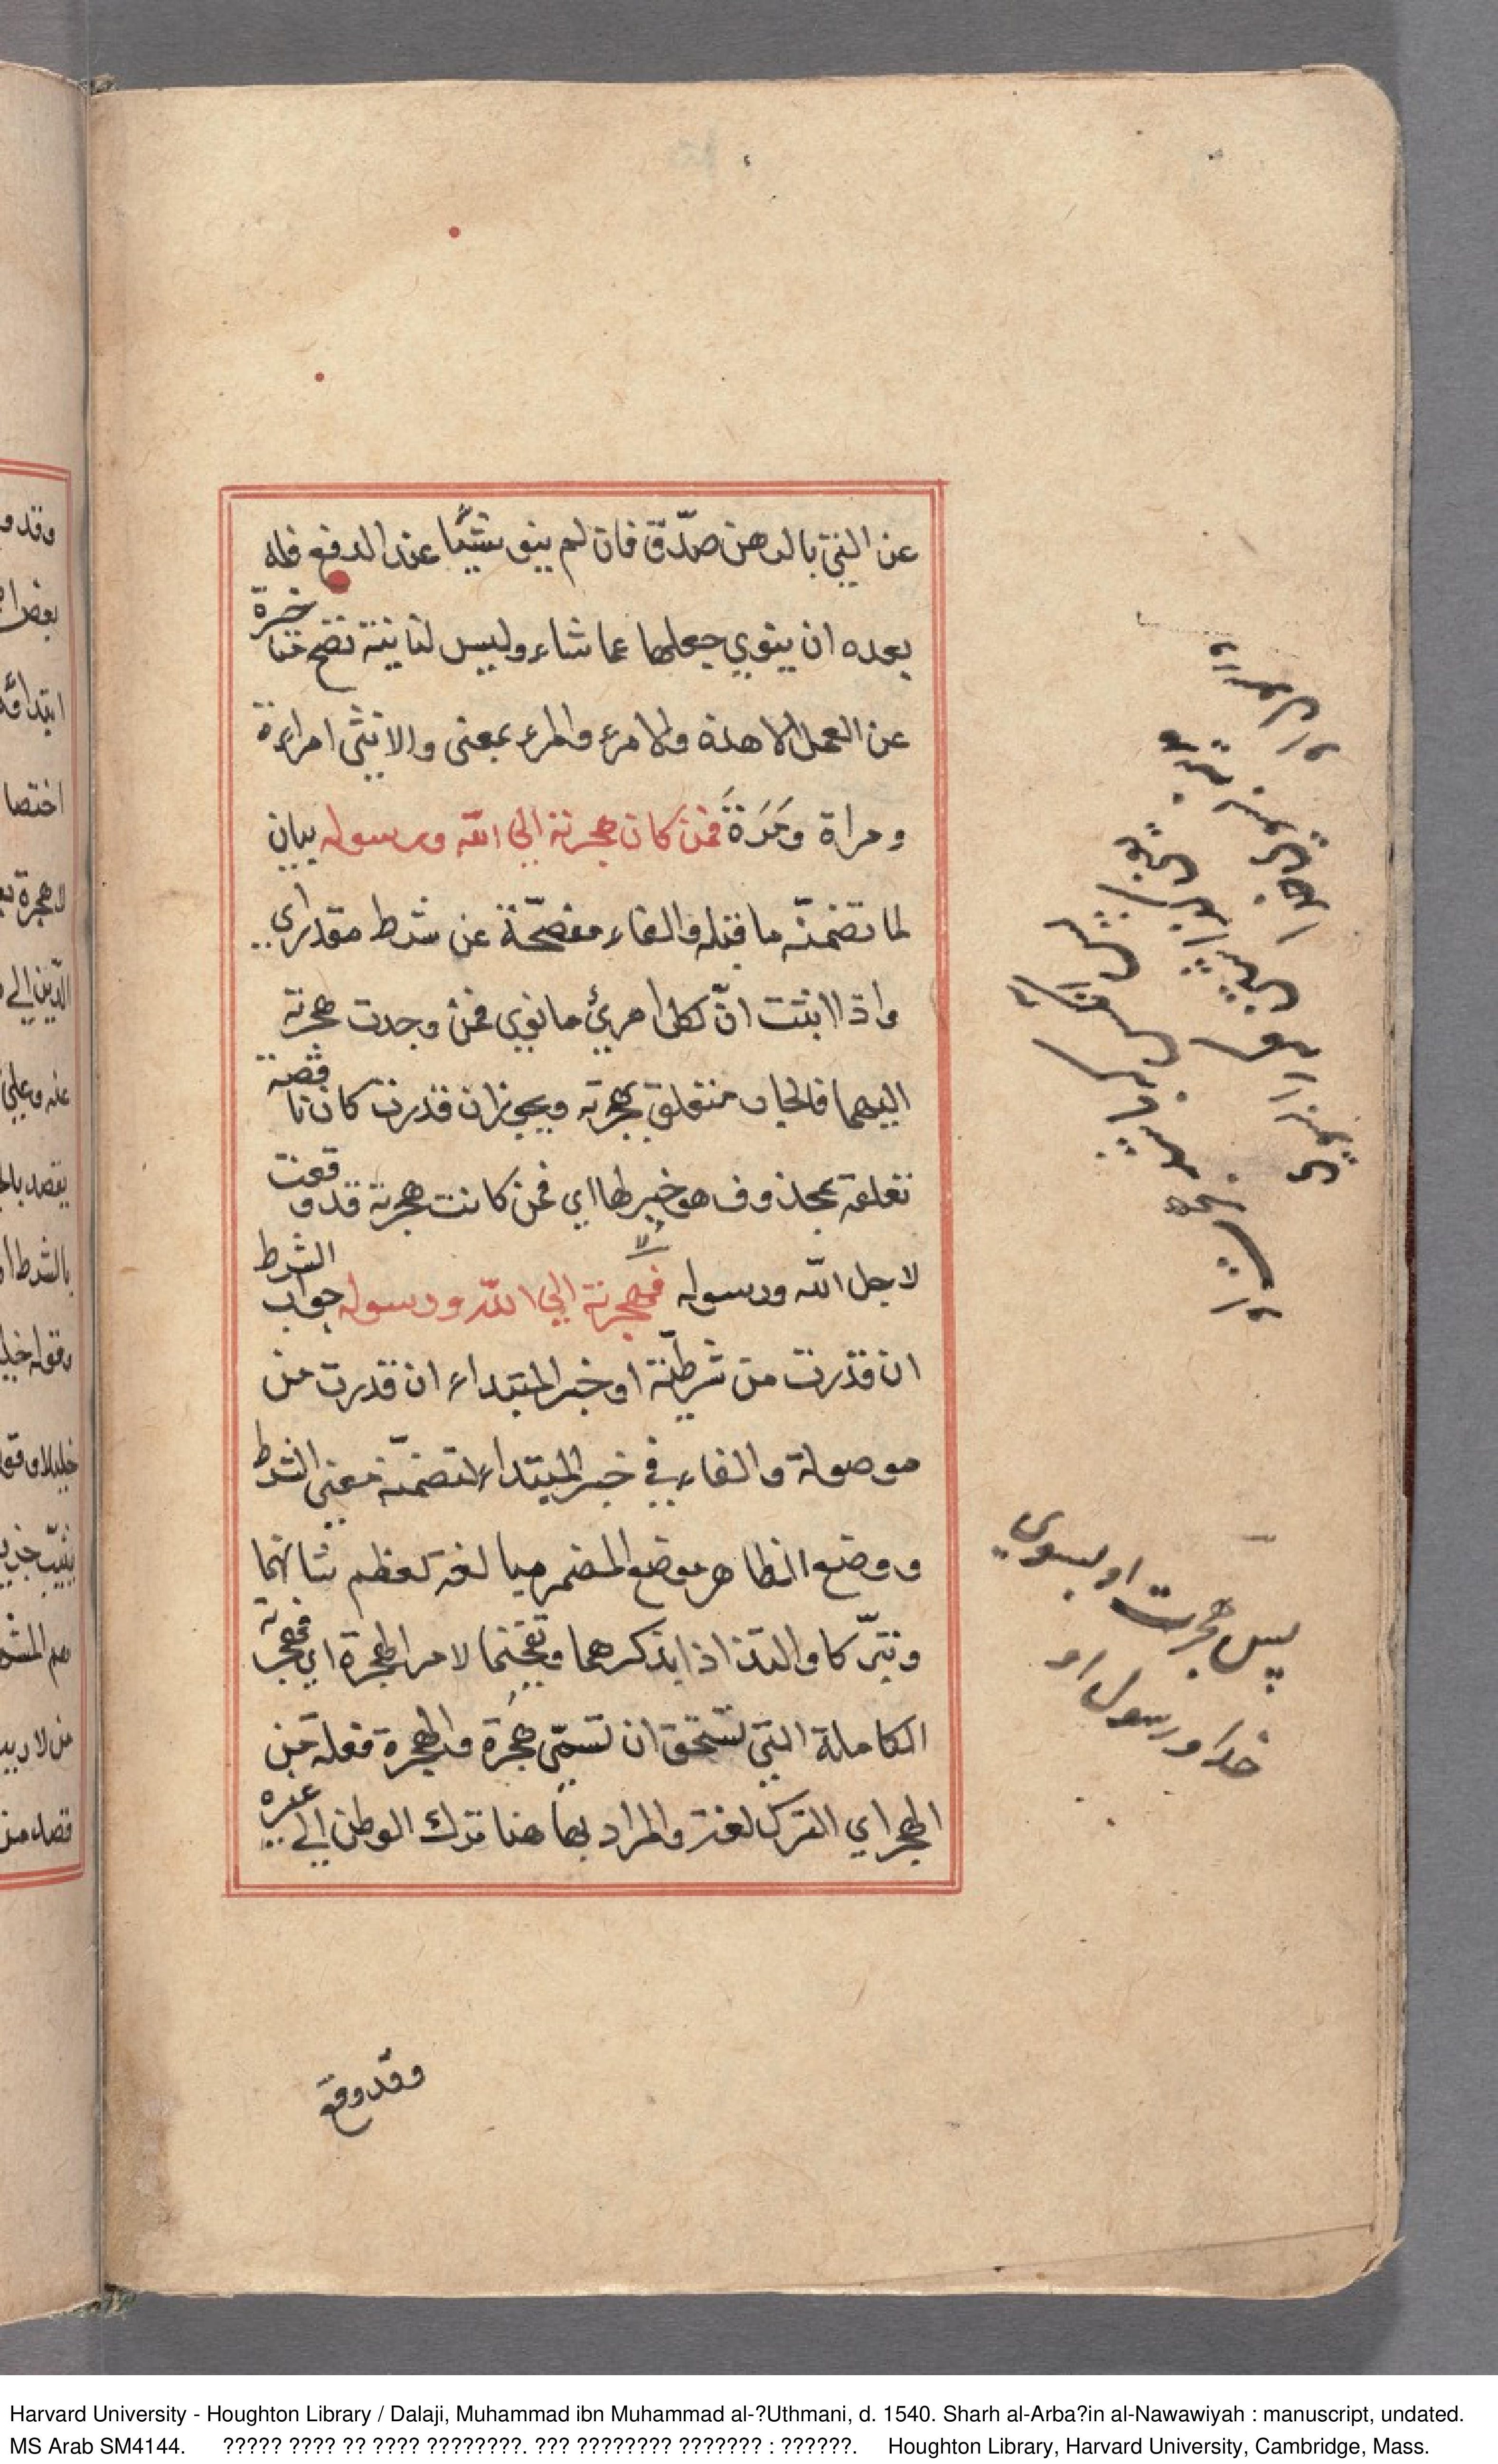 عن التي بالرهن صدّق فان لم ينو شيًّا عند الدفع فله
بعده ان ينوي جعلها عما شاء وليس لنا نية تصح متأخرة
عن العمل الا هذه والامرء والمرء بمعنى والانثى امراءة
ومراة ومَرَةٌ فمن كان هجرته الى الله ورسوله بيان
لما تضمنّه ما قبله والفاء مفصّحة عن شرط مقدر اي
واذا اثبت انّ لكل امرئ ما نوي فمن وجدت هجرته
اليهما فالجار متعلق بهجرته ويجوز ان قدرت كان ناقصة
تعلقه بمحذوف هو خبرلها اي فمن كانت هجرته قد وقعت
لاجل الله ورسوله فهجرته الي الله ورسوله جواب الشرط
ان قدّرت من شرطيّة او خبر المبتداء ان قدرت من
موصولة والفاء في خبر المبتداء لتضمنّه معنى الشرط
ووضع الظاهر موضع المضمر مبالغة لعظم شانهما
وتبرّكا والتذاذا بذكرهما وتفخيما لامر الهجرة اي فهجرته
الكاملة التي تستحق ان تسمّى هجرة والهجرة فعلة من
الهجر اي الترك لغة والمراد بها هنا ترك الوطن الى غيره
پس هجرت او بسوي
خدا و رسول او
وقد وقع
Harvard University - Houghton Library / Dalaji, Muhammad ibn Muhammad al-?Uthmani, d. 1540. Sharh al-Arba?in al-Nawawiyah : manuscript, undated.
MS Arab SM4144. ????? ???? ?? ???? ????????. ??? ???????? ??????? : ??????. Houghton Library, Harvard University, Cambridge, Mass.